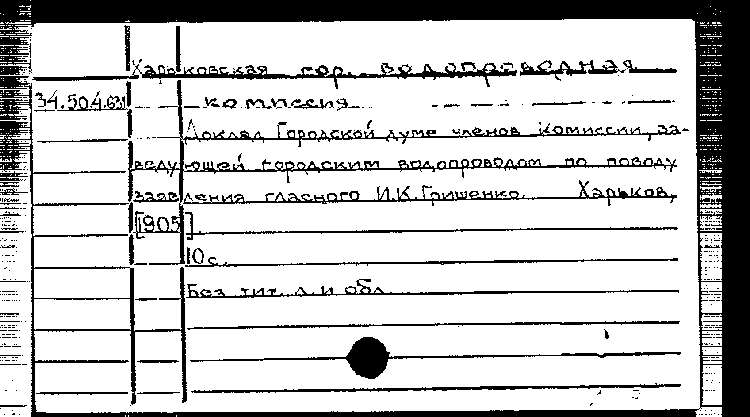 Харьковская гор. водопроводная
34.504.631 комиссия
Доклад Городской думе членов Комиссии, за-
ведующей городским водопроводом по поводу
заявления гласного И.К. Гришенко. Харьков,
[905].
10 с.
Без тит. л. и обл.